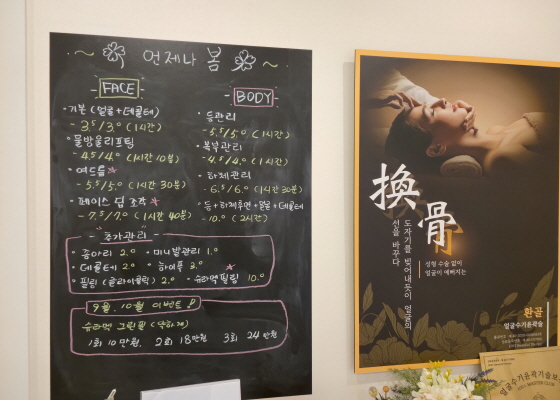 언제나 봄
FACE
· 기본 (얼굴 + 데콜테)
- 3.5/3.0 (1시간)
· 물방울리프팅
- 4.5/4.0 (1시간 10분)
· 여드름
- 5.5/5.0 (1시간 30분)
· 페이스 딥 조각
- 7.5/7.0 (1시간 40분)
BODY
· 등관리
- 5.5/5.0 (1시간)
· 복부관리
- 4.5/4.0 (1시간)
· 하체관리
- 6.5/6.0 (1시간 30분)
· 등+하체후면+얼굴+데콜테
- 10.0 (2시간)
- 추가관리 -
· 종아리 2.0 · 미니발관리 1.0
· 데콜테 2.0 · 하이푸 3.0
· 필링 (글라이콜릭) 2.0 · 슈라멕필링 10.0
9월. 10월 이벤트!
슈라멕 그린필 (약하게)
1회 10만원, 2회 18만원 3회 24만원
換骨
도자기를 빚어내듯이 얼굴의
선을 바꾸다
성형 수술 없이
얼굴이 예뻐지는
환골
얼굴수기윤곽술
얼굴수기윤곽기술보